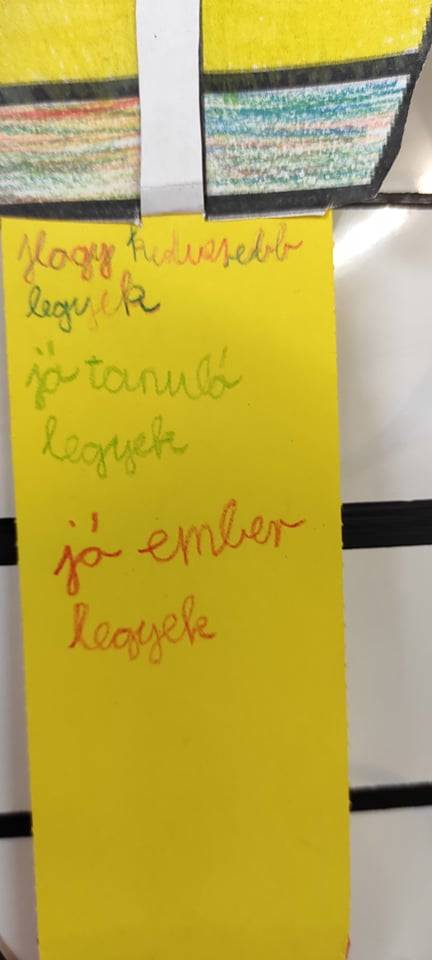 Hagy kedvesebb
legyek
já tanuló
legyek
já ember
legyek